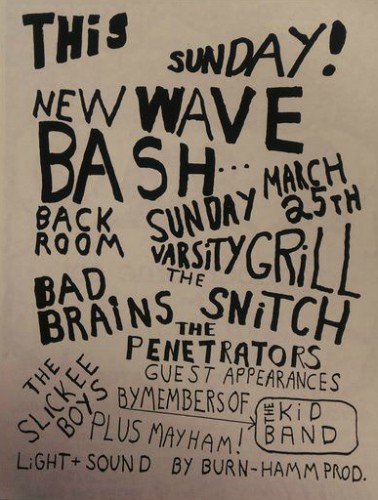 THiS SUNDAY!
NEW WAVE
BASH...
MARCH
25TH
BACK
ROOM
SUNDAY
VARSiTY GRiLL
BAD
BRAiNS
THE
SNiTCH
THE
PENETRATORS
THE
SLICKEE
BOYS
GUEST APPEARANCES
BY MEMBERS OF
THE KiD
BAND
PLUS MAYHAM!
LiGHT + SOUND BY BURN-HAMM PROD.